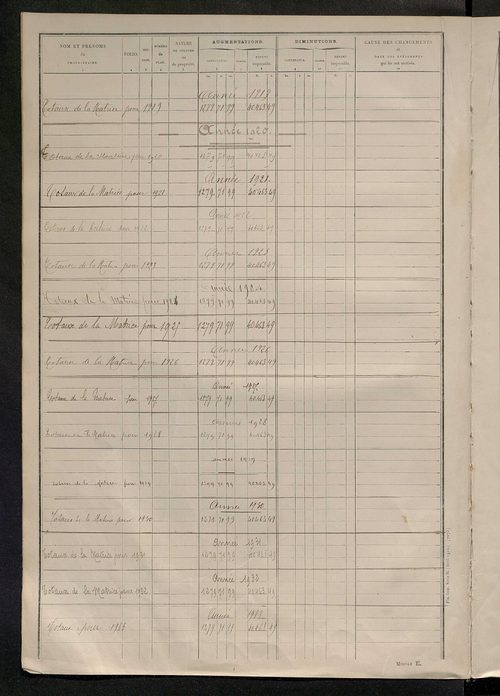 NOM ET PRÉNOMS
du
PROPRIÉTAIRE.
FOLIO.
NUMÉRO
du
PLAN.
NATURE
DE CULTURE
ou
de propriété.
AUGMENTATIONS.
REVENU
imposable.
DIMINUTIONS.
REVENU
imposable.
CAUSE DES CHANGEMENTS
et
DATE DES ÉVÉNEMENTS
qui les ont motivés.
Année 1919
Totaux de la Matrice pour 1919 1279 71 99 40463 49
Année 1920.
Totaux de la Matrice pour 1920 1279 71 99 40463 49
Année 1921
Totaux de la Matrice pour 1921 1279 71 99 40463 49
Année 1922
Totaux de la Matrice pour 1922 1279 71 99 40463 49
Année 1923
Totaux de la Matrice pour 1923 1279 71 99 40463 49
Année 1924
Totaux de la Matrice pour 1924 1279 71 99 40463 49
Totaux de la Matrice pour 1925 1279 71 99 40463 49
Année 1926
Totaux de la Matrice pour 1926 1279 71 99 40463 49
Année 1927
Totaux de la Matrice pour 1927 1279 71 99 40463 49
Année 1928
Totaux de la Matrice pour 1928 1279 71 99 40463 49
Année 1929
Totaux de la Matrice pour 1929 1279 71 99 40463 49
Année 1930
Totaux de la Matrice pour 1930 1279 71 99 40463 49
Année 1931
Totaux de la Matrice pour 1931 1279 71 99 40463 49
Année 1932
Totaux de la Matrice pour 1932 1279 71 99 40463 49
Année 1933
Totaux pour 1933 1279 71 99 40463 49
Modèle E.